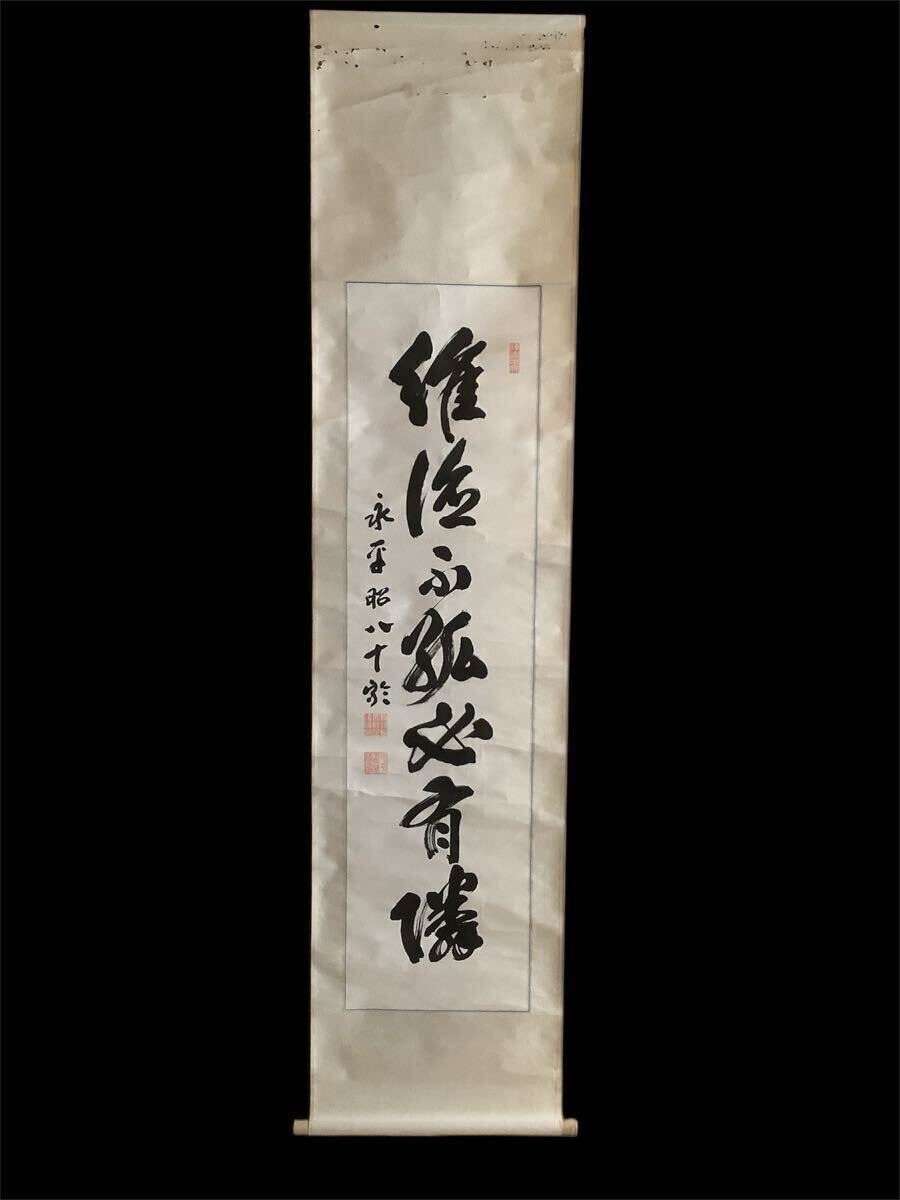 維徳不孤必有隣
永平昭八十於